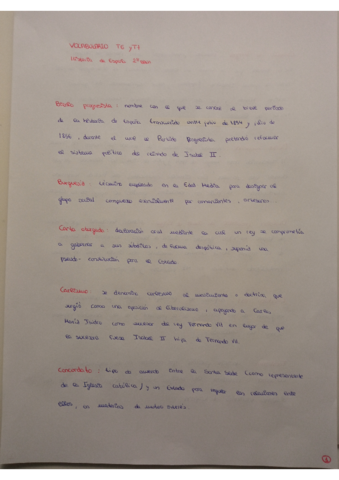 VOCABULARIO T6 y T7
Historia de España 2º Bach
Bienio progresista: nombre con el que se conoce al breve periodo
de la Historia de España transcurrido entre julio de 1854 y julio de
1856, durante el cual el Partido Progresista pretendió reformar
el sistema político del reinado de Isabel II.
Burguesía: término empleado en la Edad Media para designar al
grupo social compuesto principalmente por comerciantes, artesanos
Carta otorgada: documento mediante la cual un rey se comprometía
a gobernar a sus súbditos, de forma
pseudo-constitución para el Estado
Carlismo: Se denomina carlismo al movimiento y doctrina que
surgió como una oposición al liberalismo, apoyando a Carlos
María Isidro como sucesor del rey Fernando VII en lugar de que
su sucesora fuese Isabel II hija de Fernando VII.
Concordato: tipo de acuerdo entre la Santa Sede (como representante
de la Iglesia católica) y un Estado para regular las relaciones entre
ellos, en materias de mutuo interés